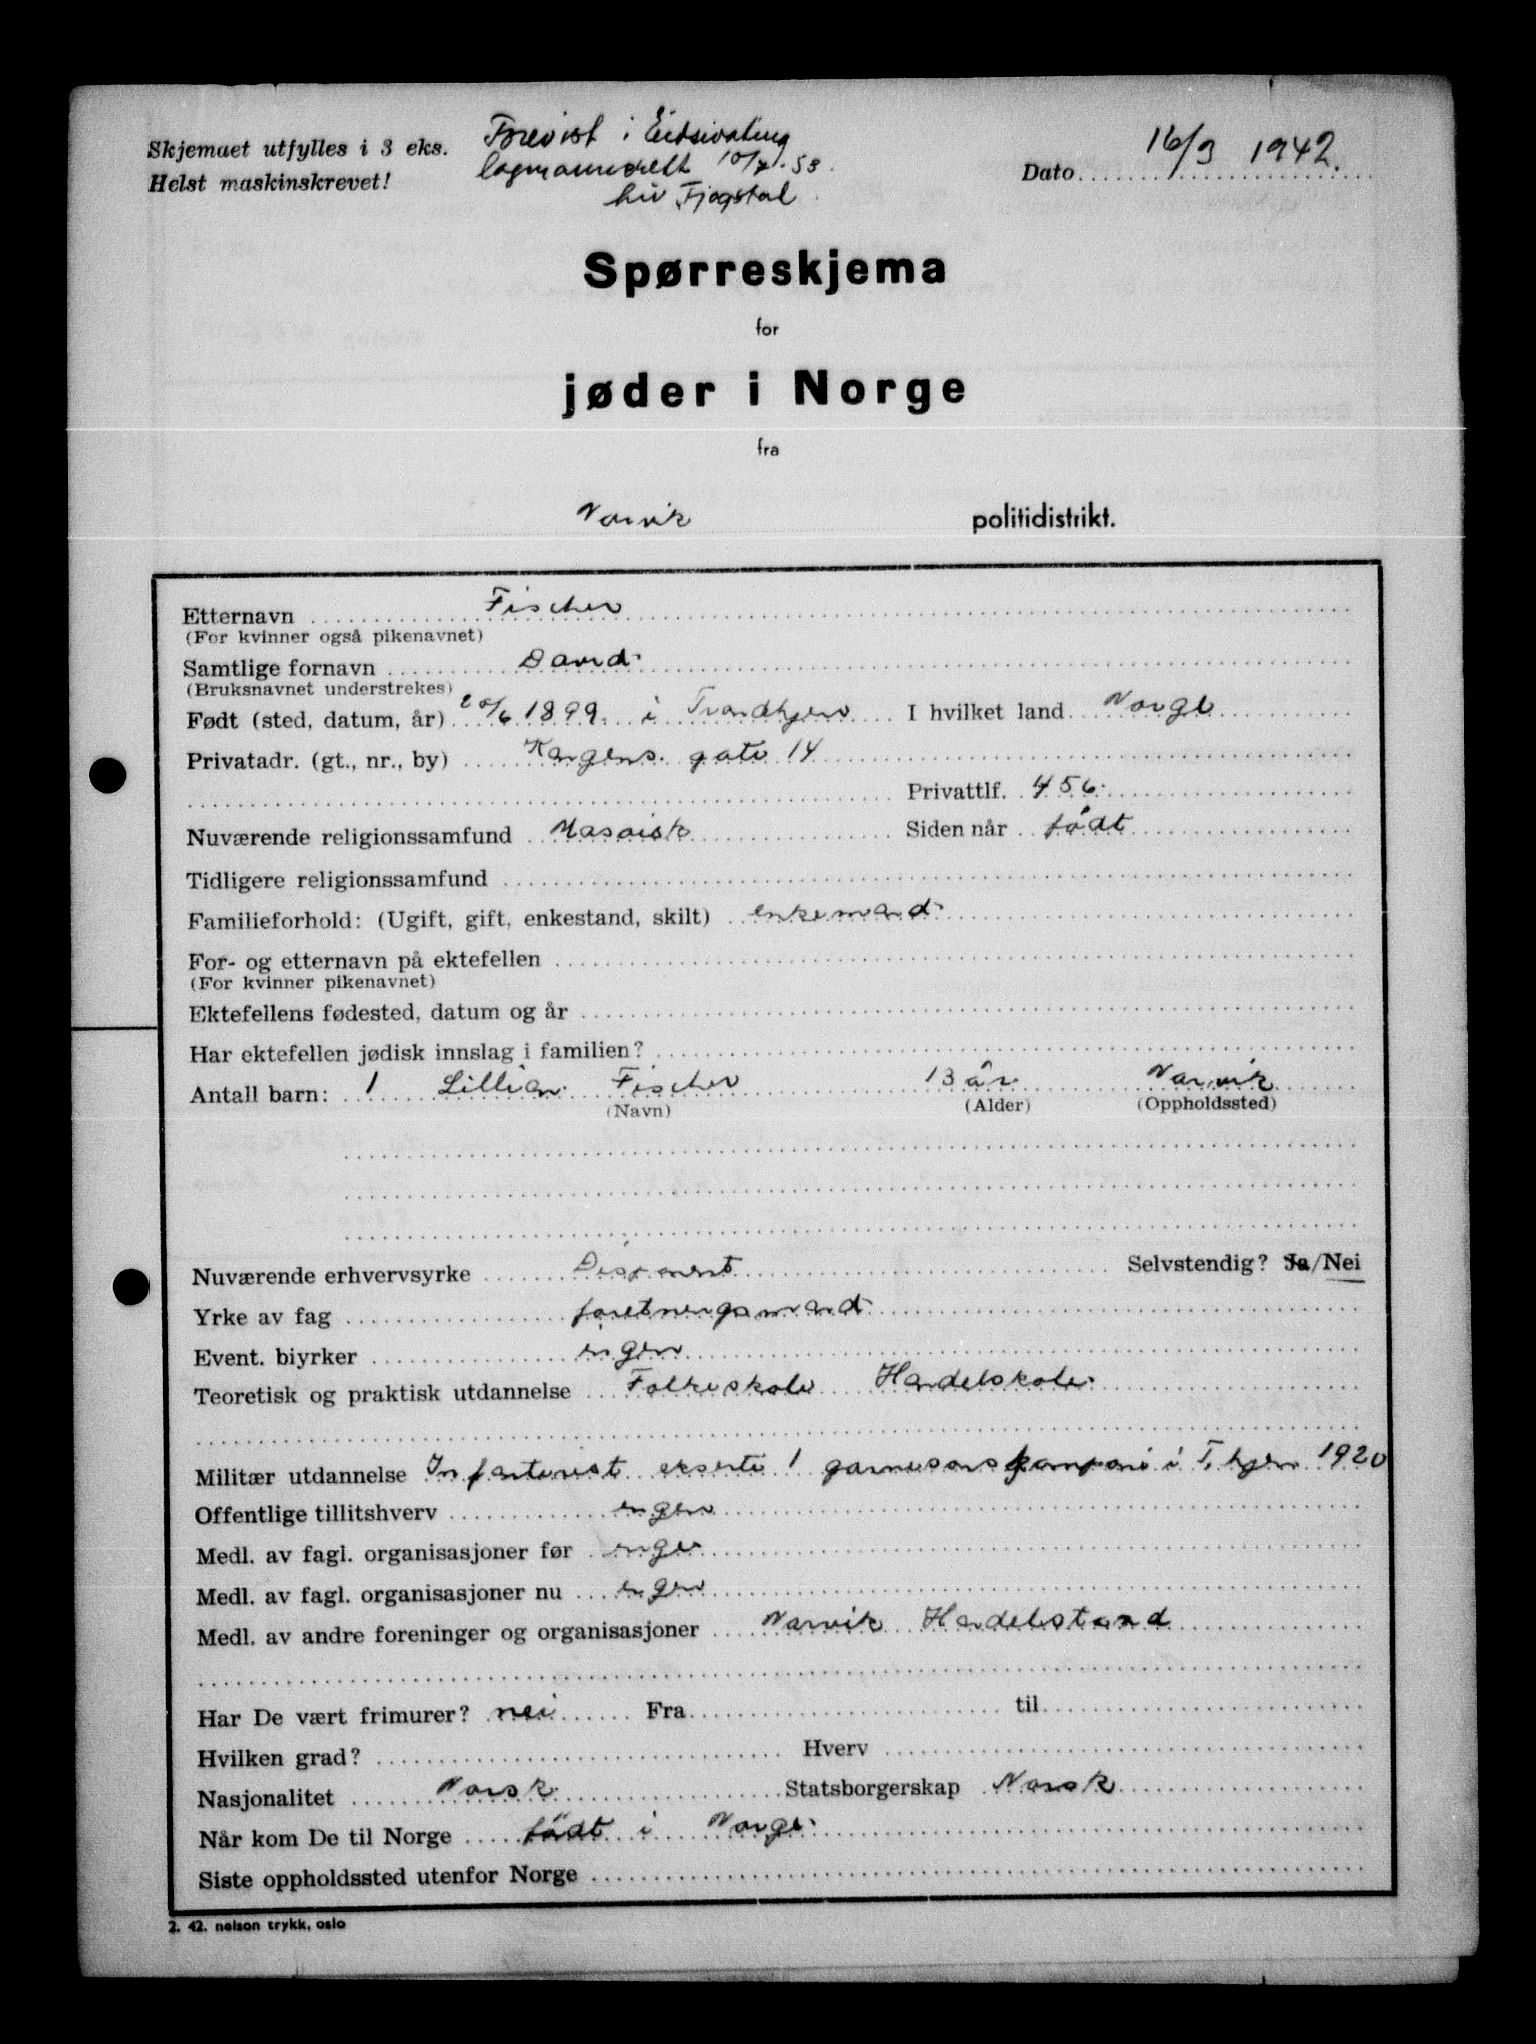 Skjemaet utfylles i 3 eks.
Helst maskinskrevet!
Frevist i Eidsivating
lagmannsrett 10/7.53.
Liv Fjogstad
Dato 16/3 1942.
Spørreskjema
for
jøder i Norge
fra
Narvik politidistrikt.
Etternavn Fischer
(For kvinner også pikenavnet)
Samtlige fornavn David
(Bruksnavnet understrekes)
Født (sted, datum, år) 20/6 1899. i Trondhjem I hvilket land Norge
Privatadr. (gt., nr., by) Kongens gate 14
Privattlf. 456
Nuværende religionssamfund Mosaisk Siden når født
Tidligere religionssamfund
Familieforhold: (Ugift, gift, enkestand, skilt) enkemand
For- og etternavn på ektefellen
(For kvinner pikenavnet)
Ektefellens fødested, datum og år
Har ektefellen jødisk innslag i familien?
Antall barn: 1 Lillian Fischer 13 år Narvik
(Navn) (Alder) (Oppholdssted)
Nuværende erhvervsyrke Disponent Selvstendig? Ja/Nei
Yrke av fag foretningsmand
Event. biyrker ingen
Teoretisk og praktisk utdannelse Folkeskole Handelskole
Militær utdannelse Infanterist 1 garnisonskompani i T.hjem 1920
Offentlige tillitshverv ingen
Medl. av fagl. organisasjoner før ingen
Medl. av fagl. organisasjoner nu ingen
Medl. av andre foreninger og organisasjoner Narvik Handelstand
Har De vært frimurer? nei Fra til
Hvilken grad? Hverv
Nasjonalitet Norsk Statsborgerskap Norsk
Når kom De til Norge født i Norge
Siste oppholdssted utenfor Norge
2. 42. nelson trykk, oslo